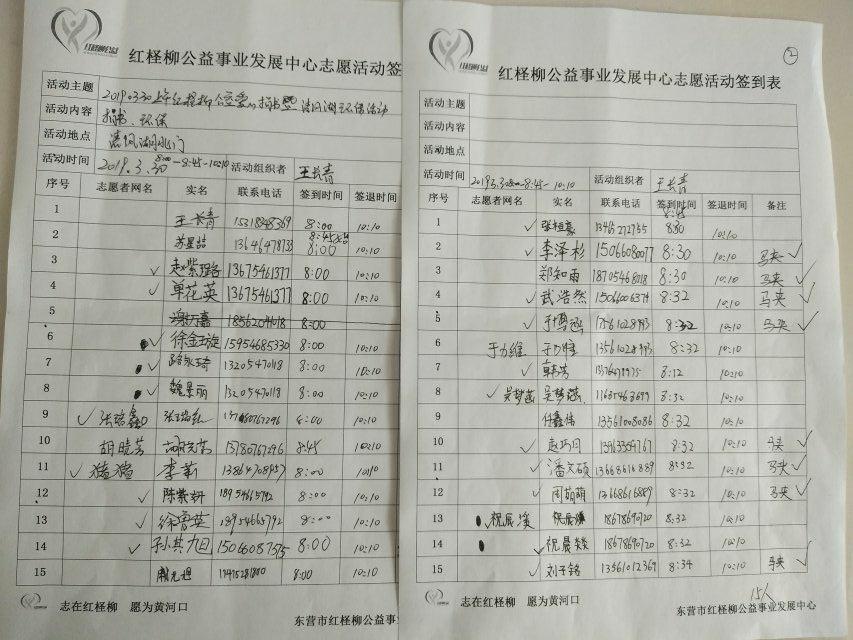 红柽柳公益事业发展中心志愿活动签
活动主题
活动内容 捐书、环保
活动地点 清风湖北门
活动时间 2019.3.30 8:00-8:45-10:10 活动组织者 王长青
序号 志愿者网名 实名 联系电话 签到时间 签退时间
1 王长青 15318848369 8:00 10:10
2 13646478733 8:45 8:00 10:10
3 ✓ 赵紫璐 13675461377 8:00 10:10
4 ✓ 单花英 13675461377 8:00 10:10
5 18562044018 8:00
6 徐金璇 15954685330 8:00 10:10
7 13205470118 8:00 10:10
8 魏昱丽 13205470118 8:00 10:10
9 ✓ 8:00 10:10
10 胡晓芳 胡晓芳 13780767296 8:45 10:10
11 ✓ 猪猪 李新 8:00 10:10
12 ✓ 8:00 10:10
13 ✓ 徐鲁英 8:00 10:10
14 ✓ 孙其旭 15066087575 8:00 10:10
15 8:00 10:10
志在红柽柳 愿为黄河口
东营市红柽柳公益事业发
②
红柽柳公益事业发展中心志愿活动签到表
活动主题
活动内容
活动地点
活动时间 2019.3.30 8:00-8:45-10:10 活动组织者 王长青
序号 志愿者网名 实名 联系电话 签到时间 签退时间 备注
1 ✓ 13465272755 8:45 8:30 10:10
2 ✓ 李泽杉 15066080077 8:30 10:10 马夹 ✓
3 郑知雨 18705468018 8:30 10:10 马夹 ✓
4 ✓ 武浩然 15066006374 8:32 10:10 马夹 ✓
5 ✓ 于博涵 8:32 10:10 马夹 ✓
6 于力维 于力维 13561028993 8:32 10:10
7 ✓ 韩芳 8:12 10:10
8 ✓ 吴梦菡 吴梦菡 8:32 10:10
9 任鑫伟 13561008086 8:32 10:10
10 ✓ 赵巧月 8:32 10:10 马夹 ✓
11 ✓ 潘文硕 13668616889 8:32 10:10 马夹 ✓
12 ✓ 周萌萌 13668616889 8:32 10:10 马夹 ✓
13 祝辰溪 祝辰溪 18678690720 8:32 10:10
14 ✓ 祝晨燚 18678690720 8:32 10:10
15 ✓ 刘子铭 13561012369 8:34 10:10 马夹 ✓
15人
志在红柽柳 愿为黄河口
东营市红柽柳公益事业发展中心